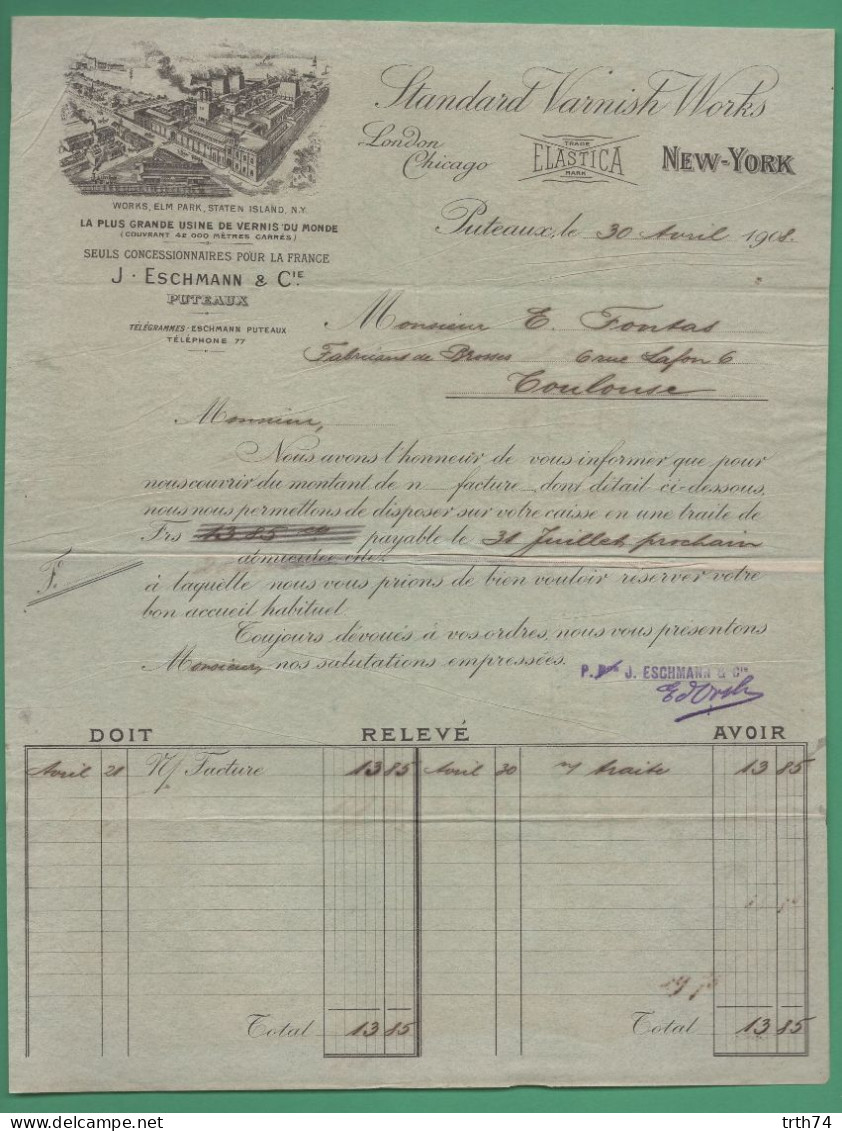 Standard Varnish Works
London
Chicago
TRADE
ELASTICA
MARK
NEW-YORK
WORKS, ELM PARK, STATEN ISLAND, N.Y.
LA PLUS GRANDE USINE DE VERNIS DU MONDE
(COUVRANT 42 000 MÈTRES CARRÉS)
SEULS CONCESSIONNAIRES POUR LA FRANCE
J. ESCHMANN & CIE
PUTEAUX
TÉLÉGRAMMES-ESCHMANN PUTEAUX
TÉLÉPHONE 77
Puteaux, le 30 Avril 1908.
Monsieur E. Fontas
Fabricant de Brosses 6 rue Lafon 6
Toulouse
Monsieur,
Nous avons l'honneur de vous informer que pour
nous couvrir du montant de n facture dont détail ci-dessous,
nous nous permettons de disposer sur votre caisse en une traite de
Frs 13 85 payable le 31 Juillet prochain
à laquelle nous vous prions de bien vouloir réserver votre
bon accueil habituel
F.
Toujours dévoués à vos ordres, nous vous présentons
Monsieur, nos salutations empressées.
P. J. ESCHMANN & Cie
DOIT RELEVÉ AVOIR
Avril 28 N/ Facture 13 85 Avril 30 n/ traite 13 85
Total 13 85 Total 13 85
trth74